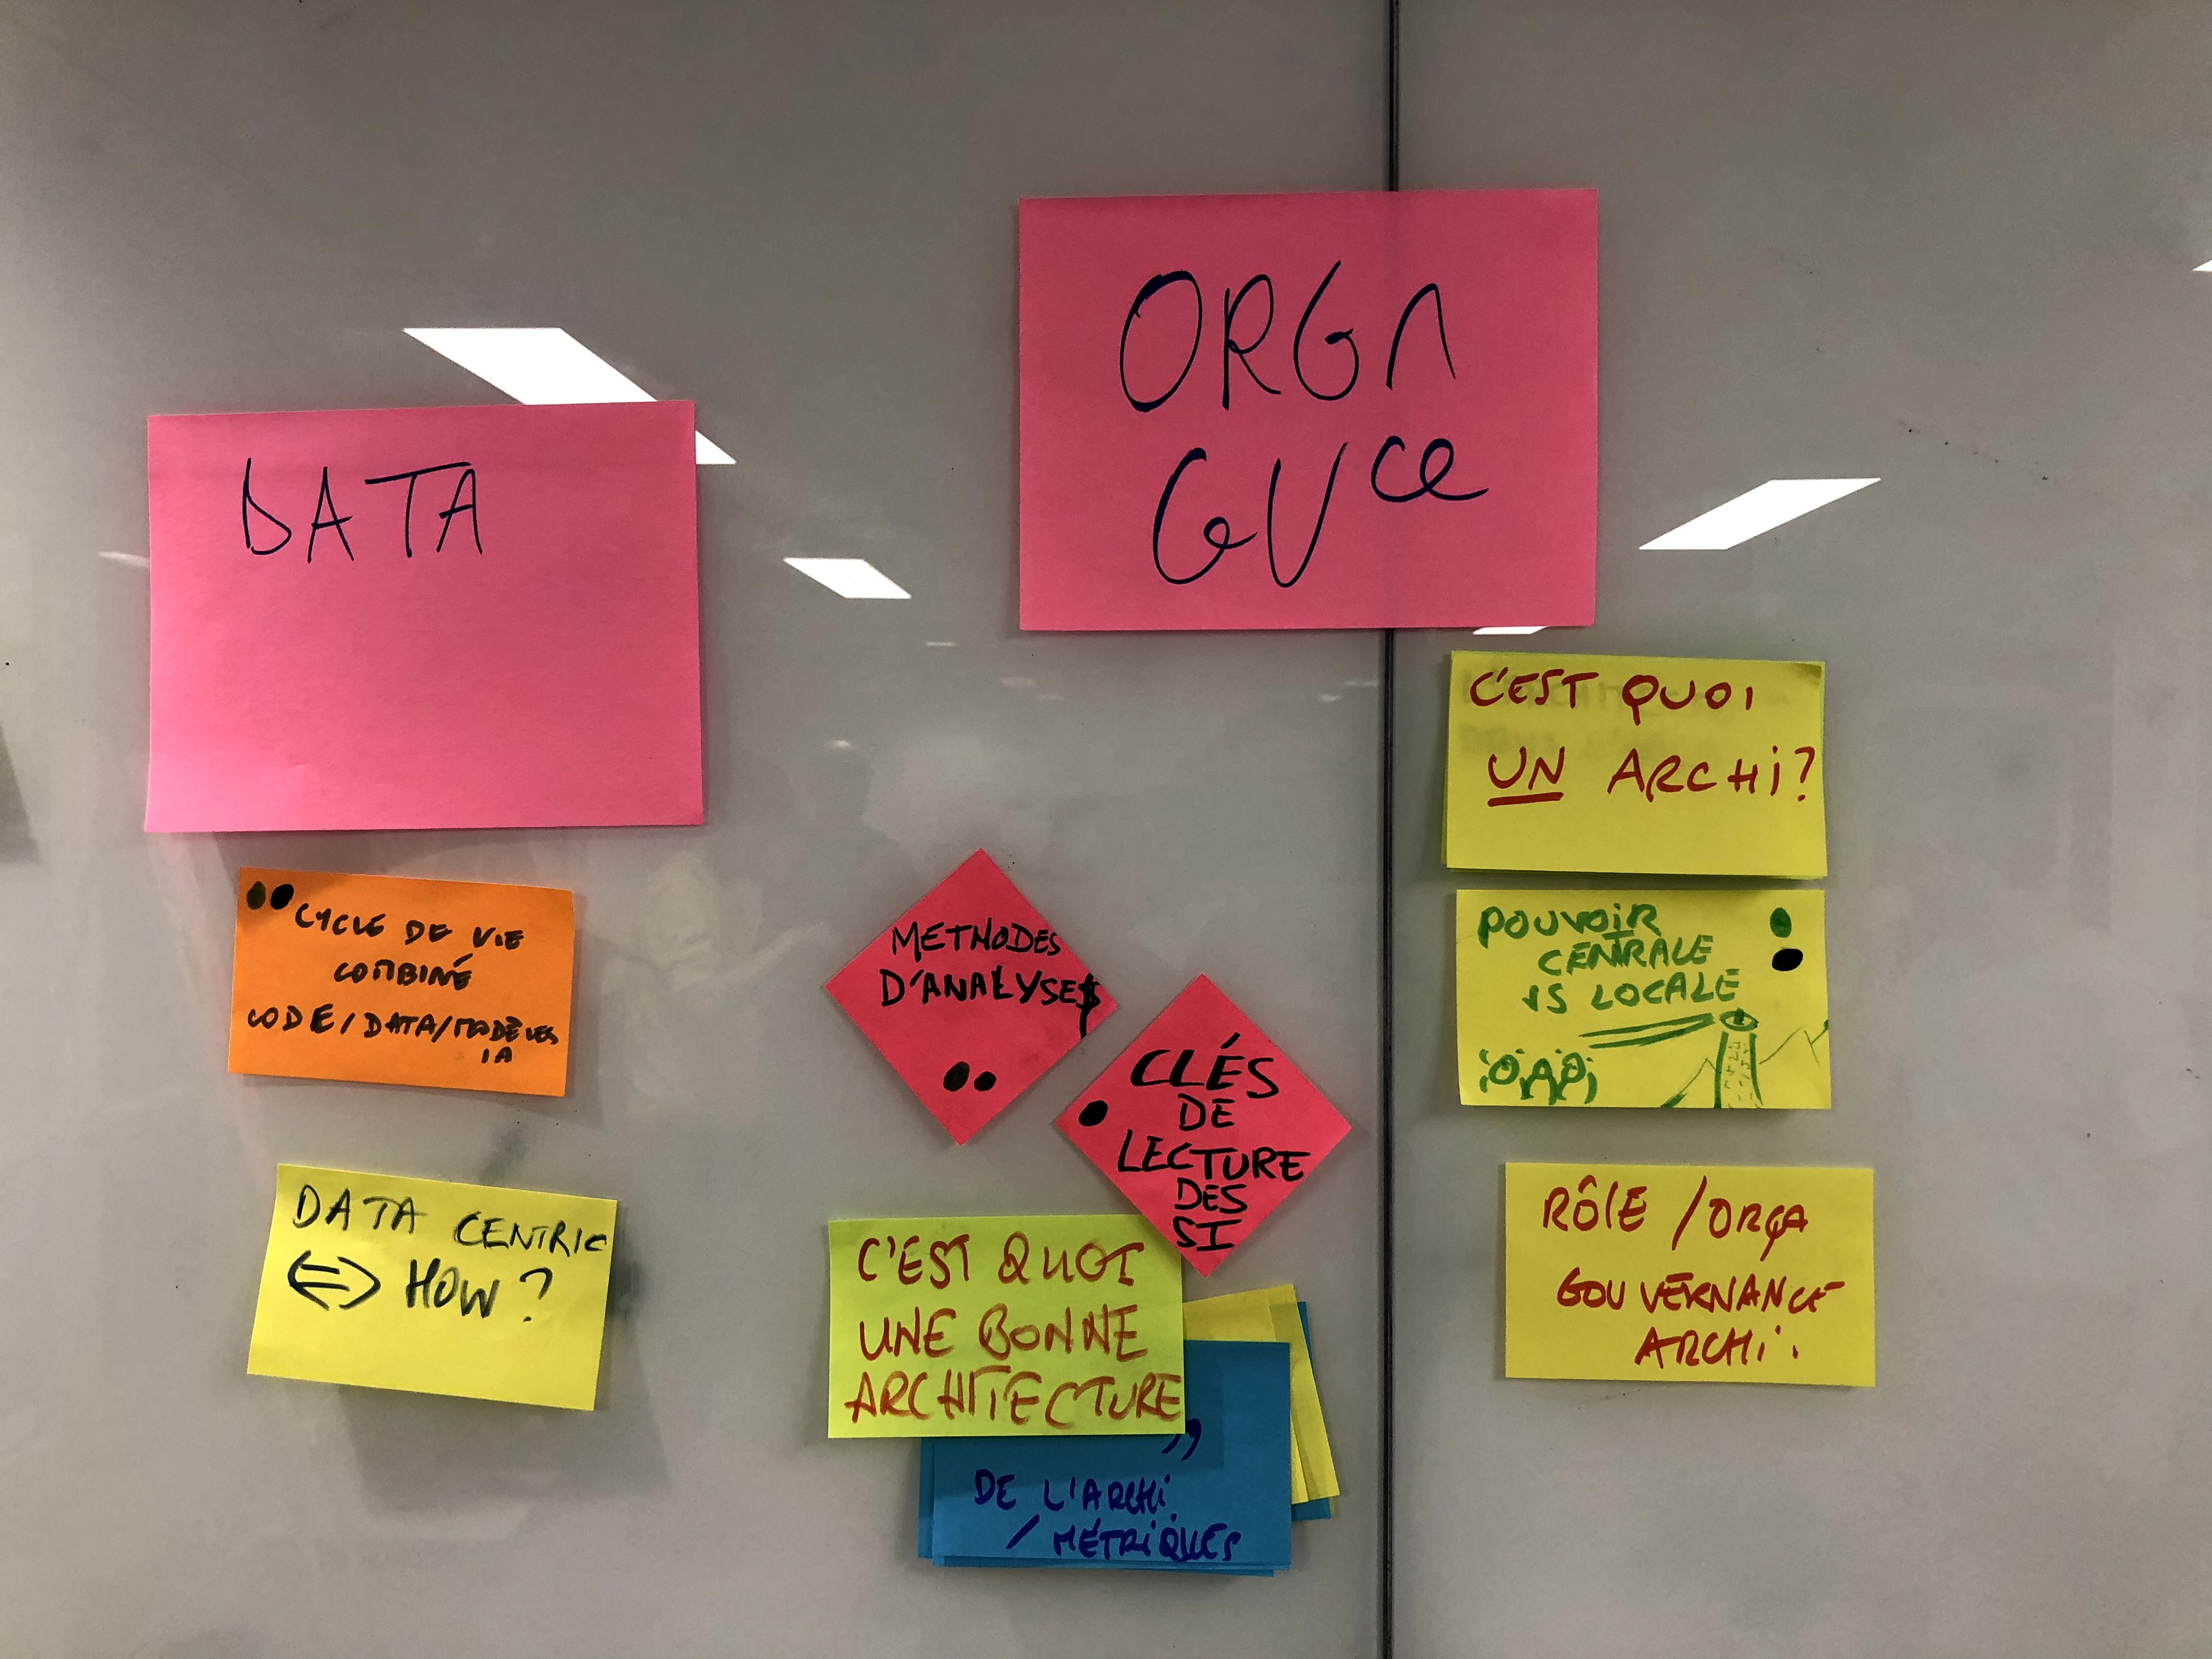 DATA
CYCLE DE VIE
COMBINÉ
CODE/DATA/MODÈLES
IA
DATA CENTRIC
<=> HOW ?
ORGA
GVce
METHODES
D'ANALYSES
CLÉS
DE
LECTURE
DES
SI
C'EST QUOI
UNE BONNE
ARCHITECTURE
DE L'ARCHI
/ MÉTRIQUES
C'EST QUOI
UN ARCHI?
POUVOIR
CENTRALE
VS LOCALE
RÔLE /ORGA
GOUVERNANCE
ARCHI.